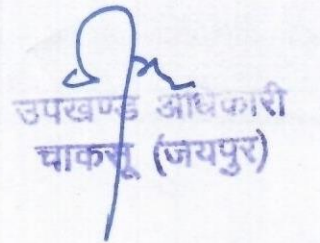 उपखण्ड अधिकारी
चाकसू (जयपुर)